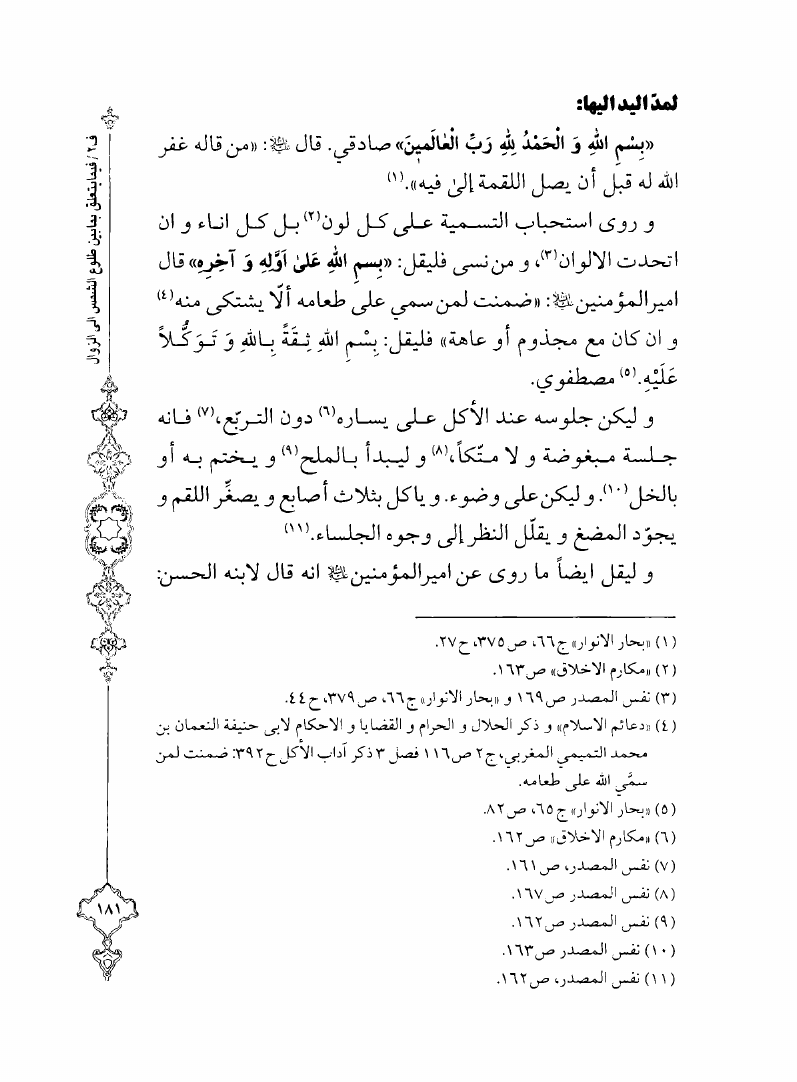 لمدّ اليد اليها:
«بِسْمِ اللهِ وَ الْحَمْدُ لِلهِ رَبِّ الْعٰالَمينَ» صادقي. قال ﷺ: «من قاله غفر
الله له قبل أن يصل اللقمة إلىٰ فيه».(١)
و روى استحباب التسمية على كل لون(٢) بل كل اناء و ان
اتحدت الالوان(٣)، و من نسى فليقل: «بِسمِ اللهِ عَلىٰ اَوَّلِهِ وَ آخِرِهِ» قال
اميرالمؤمنين عليه السلام: «ضمنت لمن سمي على طعامه ألّا يشتكى منه(٤)
و ان كان مع مجذوم أو عاهة» فليقل: بِسْمِ اللهِ ثِقَةً بِاللهِ وَ تَوَكُّلاً
عَلَيْهِ.(٥) مصطفوي.
و ليكن جلوسه عند الأكل على يساره(٦) دون التربّع،(٧) فانه
جلسة مبغوضة و لا متّكاً،(٨) و ليبدأ بالملح(٩) و يختم به أو
بالخل(١٠). و ليكن على وضوء. و ياكل بثلاث أصابع و يصغِّر اللقم و
يجوّد المضغ و يقلّل النظر إلى وجوه الجلساء.(١١)
و ليقل ايضاً ما روى عن اميرالمؤمنين عليه السلام انه قال لابنه الحسن:
(١) «بحار الانوار» ج٦٦، ص٣٧٥، ح٢٧.
(٢) «مكارم الاخلاق» ص١٦٣.
(٣) نفس المصدر ص١٦٩ و «بحار الانوار» ج٦٦، ص٣٧٩، ح٤٤.
(٤) «دعائم الاسلام» و ذكر الحلال و الحرام و القضايا و الاحكام لابي حنيفة النعمان بن
محمد التميمي المغربي، ج٢ ص١١٦ فصل ٣ ذكر آداب الأكل ح٣٩٢: ضمنت لمن
سمَّي الله على طعامه.
(٥) «بحار الانوار» ج٦٥، ص٨٢.
(٦) «مكارم الاخلاق» ص١٦٢.
(٧) نفس المصدر، ص١٦١.
(٨) نفس المصدر ص١٦٧.
(٩) نفس المصدر ص١٦٢.
(١٠) نفس المصدر ص١٦٣.
(١١) نفس المصدر، ص١٦٢.
ف٢ / فيما يتعلق بمابين طلوع الشمس الى الزوال
١٨١